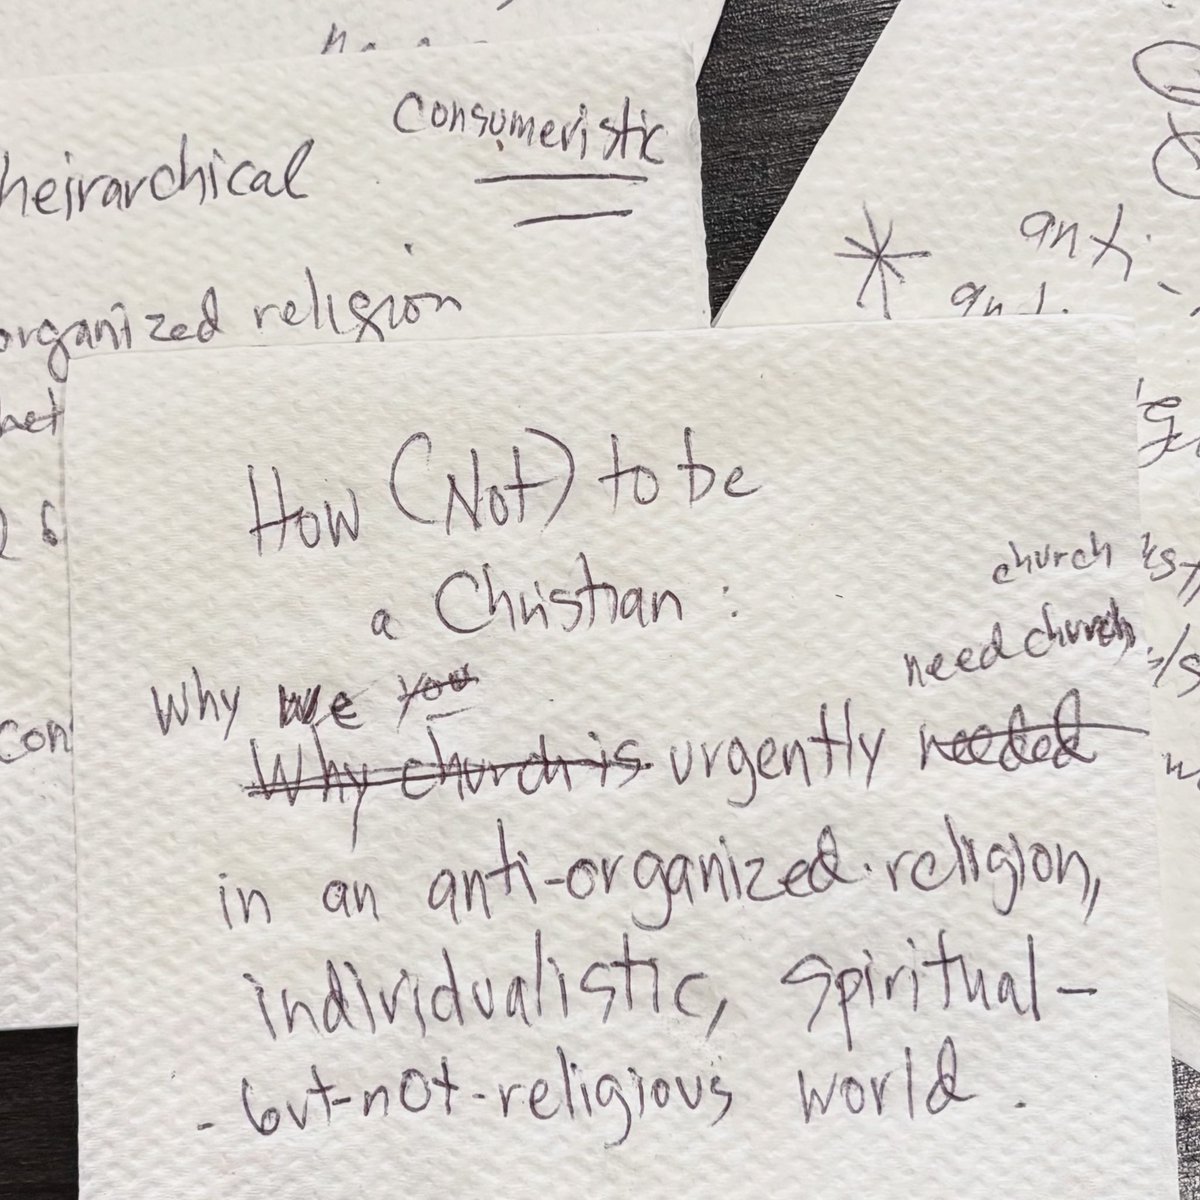 consumeristic
heirarchical
organized religion
anti
How (Not) to be
a Christian:
church
need church
Why we you
Why church is urgently needed
in an anti-organized-religion,
individualistic, spiritual-
but-not-religious world.